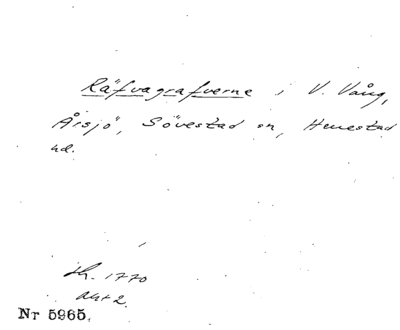 Räfvagrafverne i V. Vång,
Årsjö, Sövestad sn, Herrestad
hd.
sk. 1770
akt 2.
Nr 5965.